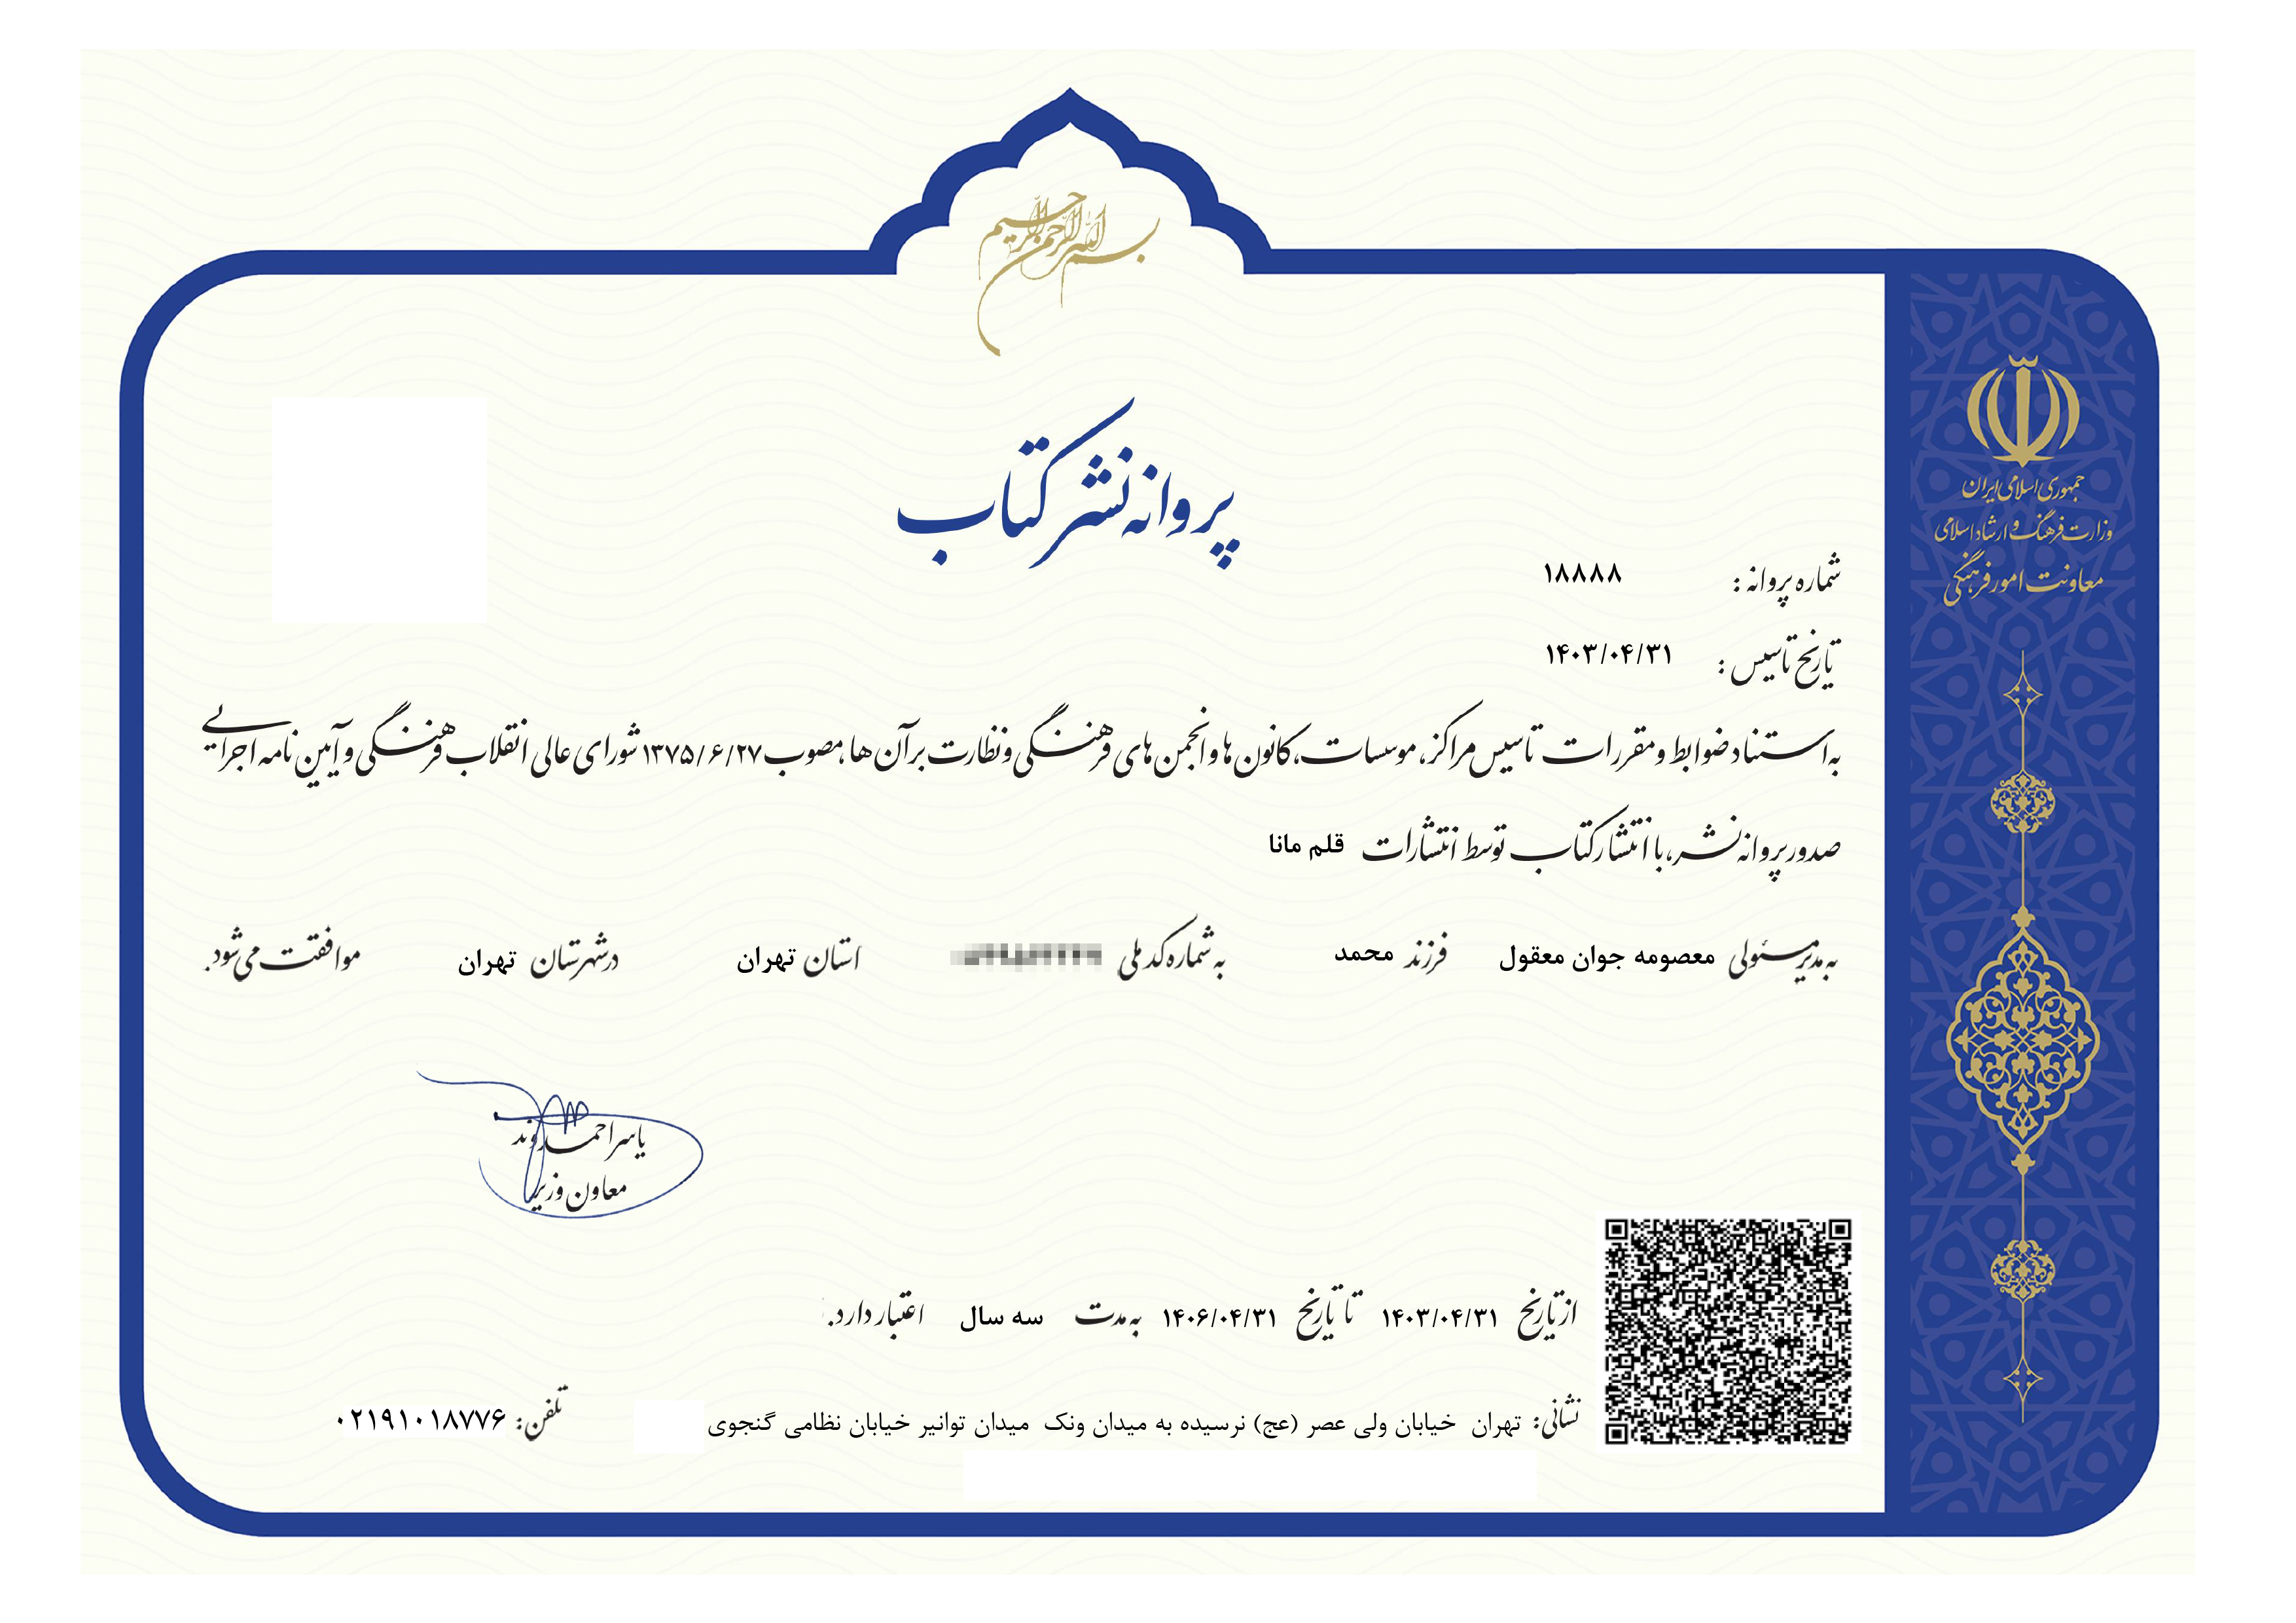 بسم الله الرحمن الرحیم
جمهوری اسلامی ایران
وزارت فرهنگ و ارشاد اسلامی
معاونت امور فرهنگی
پروانه نشر کتاب
شماره پروانه : ۱۸۸۸۸
تاریخ تاسیس : ۱۴۰۳/۰۴/۳۱
به استناد ضوابط و مقررات تاسیس مراکز، موسسات، کانون ها و انجمن های فرهنگی و نظارت بر آن ها، مصوب ۱۳۷۵/۶/۲۷ شورای عالی انقلاب فرهنگی و آیین نامه اجرایی
صدور پروانه نشر، با انتشار کتاب توسط انتشارات قلم مانا
به مدیر مسئولی معصومه جوان معقول فرزند محمد به شماره کد ملی استان تهران در شهرستان تهران موافقت می شود.
یاسر احمدوند
معاون وزیر
از تاریخ ۱۴۰۳/۰۴/۳۱ تا تاریخ ۱۴۰۶/۰۴/۳۱ به مدت سه سال اعتبار دارد.
نشانی: تهران خیابان ولی عصر (عج) نرسیده به میدان ونک میدان توانیر خیابان نظامی گنجوی
تلفن: ۰۲۱۹۱۰۱۸۷۷۶